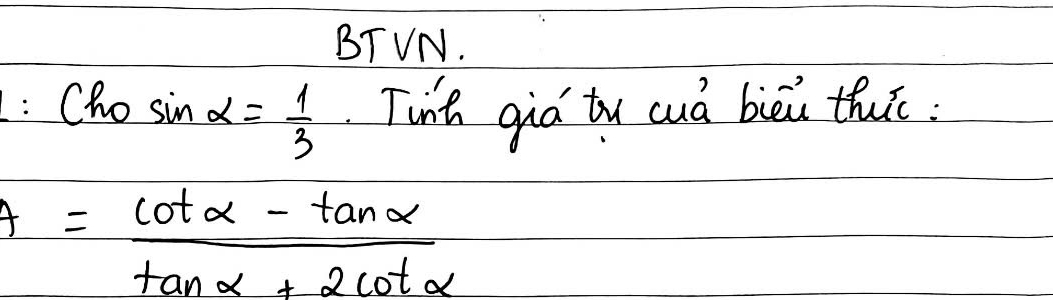 BTVN.
1: Cho sin α = 1/3. Tính giá trị của biểu thức:
A = (cot α - tan α) / (tan α + 2 cot α)